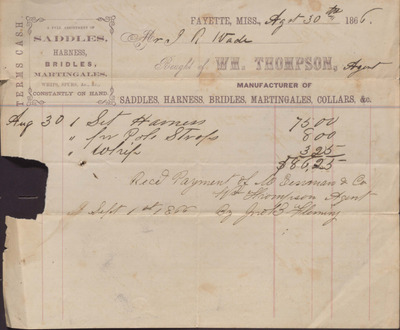 TERMS CASH
A FULL ASSORTMENT OF
SADDLES,
HARNESS,
BRIDLES,
MARTINGALES,
WHIPS, SPURS, &c., &c.,
CONSTANTLY ON HAND.
FAYETTE, MISS., Agst 30th 1866.
Mr. J R Wade
Bought of WM. THOMPSON, Agent
MANUFACTURER OF
SADDLES, HARNESS, BRIDLES, MARTINGALES, COLLARS, &c.
Aug 30 1 Set Harness 75 00
" 1 pr Pole Straps 8 00
" 1 Whip 3 25
$86,25
Recd Payment of Eisman & Co
Wm Thompson Agent
Sept 1st 1866 By Jno Fleming